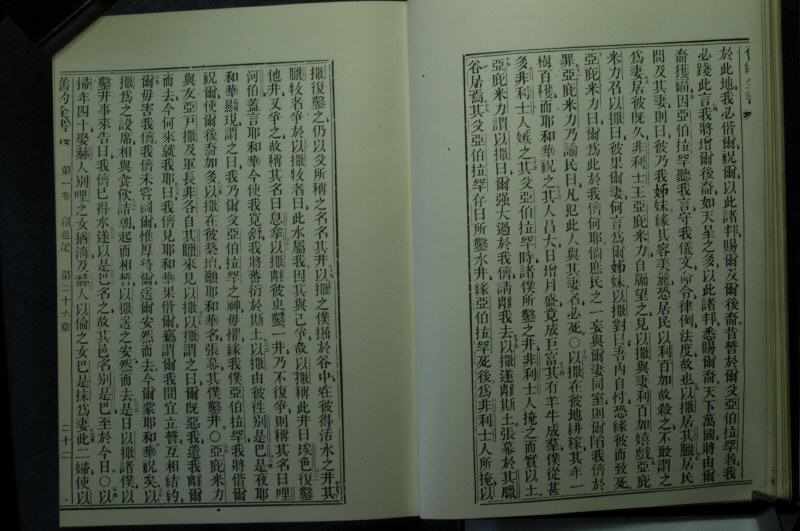 於此地我必偕爾祝爾以此諸邦賜爾及爾後裔昔誓於爾父亞伯拉罕者我
必踐此言我將增爾後裔如天星之多以此諸邦悉賜爾裔天下萬國將由爾
裔獲福因亞伯拉罕聽我言守我儀文命令律例法度故也以撒居其臘居民
問及其妻則曰彼乃我姊妹緣其容美麗恐居民以利百加故殺之不敢謂之
爲妻居彼既久非利士王亞庇米力自牖望之見以撒與妻利百加嬉戲亞庇
米力召以撒曰彼果爾妻何言爲爾姊妹以撒對曰吾內自忖恐緣彼而致死
亞庇米力曰爾爲此於我儕何耶倘庶民之一妄與爾妻同室則爾陷我儕於
罪亞庇米力乃諭民曰凡犯此人與其妻者必死○以撒在彼地耕稼其年一
樹百穫而耶和華祝之其人昌大日增月盛竟成巨富其有羊牛成羣僕從甚
多非利士人嫉之其父亞伯拉罕時諸僕所鑿之井非利士人掩之而實以土
亞庇米力謂以撒曰爾強大過於我儕請離我去以撒遂離斯土張幕於其臘
谷居焉其父亞伯拉罕存日所鑿水井緣亞伯拉罕死後爲非利士人所掩以
撒復鑿之仍以父所稱之名名其井以撒之僕掘於谷中在彼得活水之井其
臘牧者爭於以撒牧者曰此水屬我因其與己爭故以撒稱此井曰埃色復鑿
他井又爭之故稱其名曰息拿以撒離彼更鑿一井乃不復爭則稱其名曰哩
河伯蓋言耶和華今使我寬舒我將蕃衍於斯土以撒由彼往別是巴是夜耶
和華顯現謂之曰我乃爾父亞伯拉罕之神毋懼緣我僕亞伯拉罕我將偕爾
祝爾使爾後裔加多以撒在彼築壇籲耶和華名張幕其僕鑿井○亞庇米力
與友亞戶撒及軍長非各自其臘來見以撒以撒謂之曰爾既惡我遣我離爾
而去今何來就我耶曰我儕見耶和華果偕爾竊謂爾我間宜立誓互相結約
爾毋害我儕我儕未嘗圖爾惟厚待爾送爾安然而去今爾蒙耶和華祝矣以
撒爲之設席相與食飲詰朝起而相誓以撒送之安然而去是日以撒諸僕以
鑿井事來告曰我儕已得水遂以是巴名之故其邑名別是巴至於今日○以
掃年四十娶赫人別哩之女猶滴及赫人以倫之女巴是抹爲妻此二婦使以
舊約全書 第一卷 創世記 第二十六章 二十二